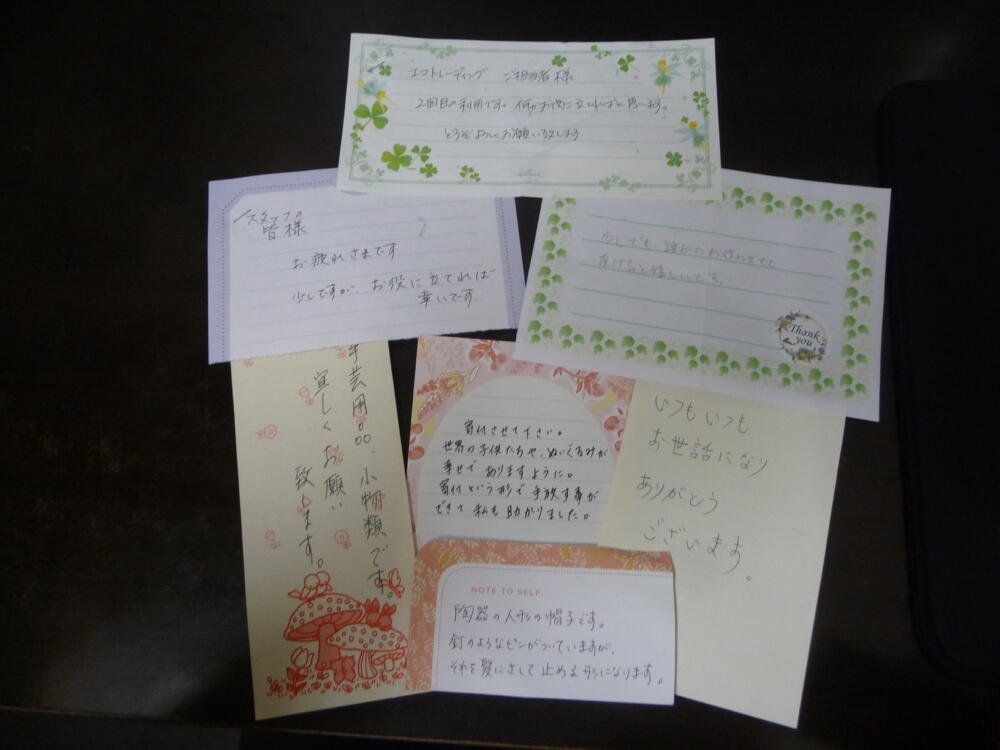 エコトレーディング ご担当者様
2回目の利用です。何かお役に立てればと思います。
どうぞよろしくお願い致します
スタッフの
皆様
お疲れさまです
少しですが、お役に立てれば
幸いです
少しでも、誰かのお役に立てて
頂けると嬉しいです。
Thank
you
手芸用品、小物類です。
宜しくお願い
致します。
寄付させて下さい。
世界の子供たちや、ぬいぐるみが
幸せでありますように。
寄付という形で手放す事が
できて私も助かりました。
いつもいつも
お世話になり
ありがとう
ございます。
NOTE TO SELF...
陶器の人形の帽子です。
釘のようなピンがついていますが、
それを髪にさして止める形になります。